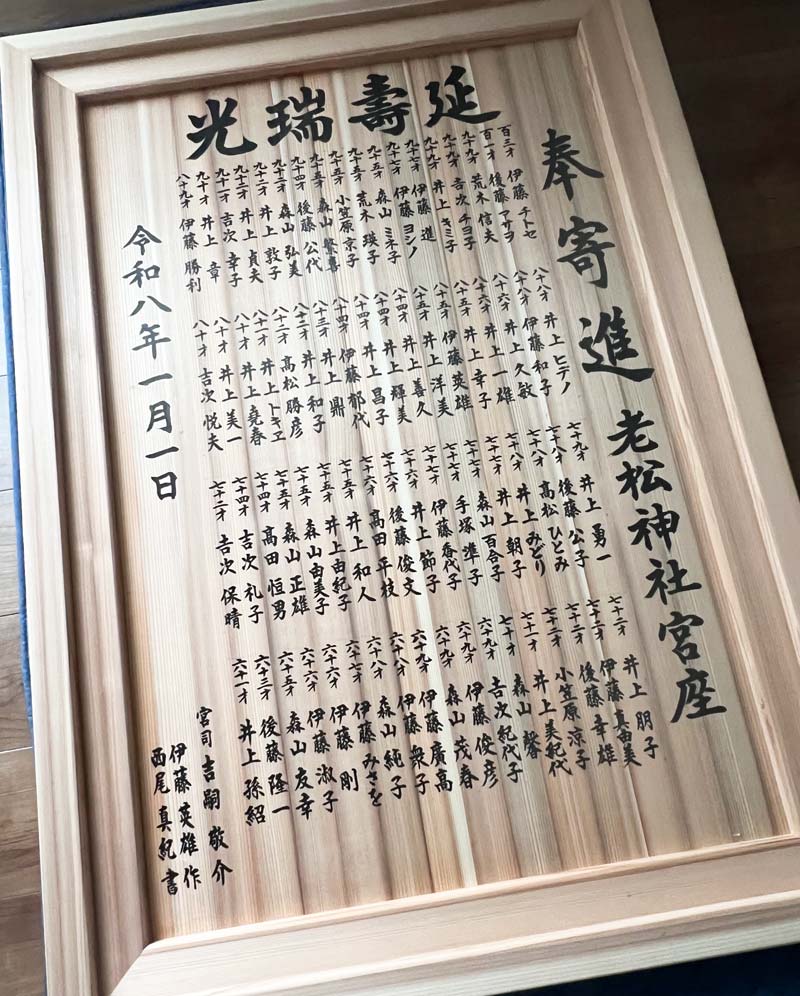 延壽瑞光
奉寄進 老松神社宮座
百三才 伊藤 チトセ
百一才 後藤 アサヲ
九十九才 荒木 信夫
九十九才 吉次 チヨ子
九十九才 井上 キミ子
九十七才 伊藤 進
九十七才 伊藤 ヨシノ
九十五才 森山 ミネ子
九十五才 荒木 瑛子
九十五才 小笠原 京子
九十五才 森山
九十四才 後藤 公代
九十二才 森山 弘美
九十二才 井上 敦子
九十二才 井上 貞夫
九十一才 吉次 幸子
九十才 井上 章
八十九才 伊藤 勝利
八十八才 井上 ヒデノ
八十八才 伊藤 和子
八十六才 井上 久敏
八十六才 井上 一雄
八十五才 井上 幸子
八十五才 伊藤 英雄
八十五才 井上 洋美
八十四才 井上 善久
八十四才 井上 輝美
八十四才 井上 昌子
八十四才 伊藤 郁代
八十三才 井上 鼎
八十三才 井上 和子
八十二才 高松 勝彦
八十一才 井上 トキヱ
八十才 井上 堯春
八十才 井上 美一
八十才 吉次 悦夫
七十九才 井上 勇一
七十八才 後藤 公子
七十八才 高松 ひとみ
七十八才 井上 みどり
七十七才 井上 朝子
七十七才 森山 百合子
七十七才 手塚 準子
七十七才 伊藤 香代子
七十六才 井上 節子
七十六才 後藤 俊文
七十六才 高田 平枝
七十五才 井上 和人
七十五才 井上 由紀子
七十五才 森山 由美子
七十五才 森山 正雄
七十四才 高田 恒男
七十四才 吉次 礼子
七十二才 吉次 保晴
七十二才 井上 朋子
七十二才 伊藤 真由美
七十二才 後藤 幸雄
七十二才 小笠原 涼子
七十一才 井上 美紀代
七十才 森山 馨
六十九才 吉次 紀代子
六十九才 伊藤 俊彦
六十九才 森山 茂春
六十九才 伊藤 廣高
六十八才 伊藤 衆子
六十八才 森山 純子
六十七才 伊藤 みさを
六十六才 伊藤 剛
六十六才 伊藤 淑子
六十五才 森山 友幸
六十三才 後藤 隆一
六十一才 井上 孫紹
令和八年一月一日
宮司 吉嗣 敬介
伊藤 英雄 作
西尾 真紀 書